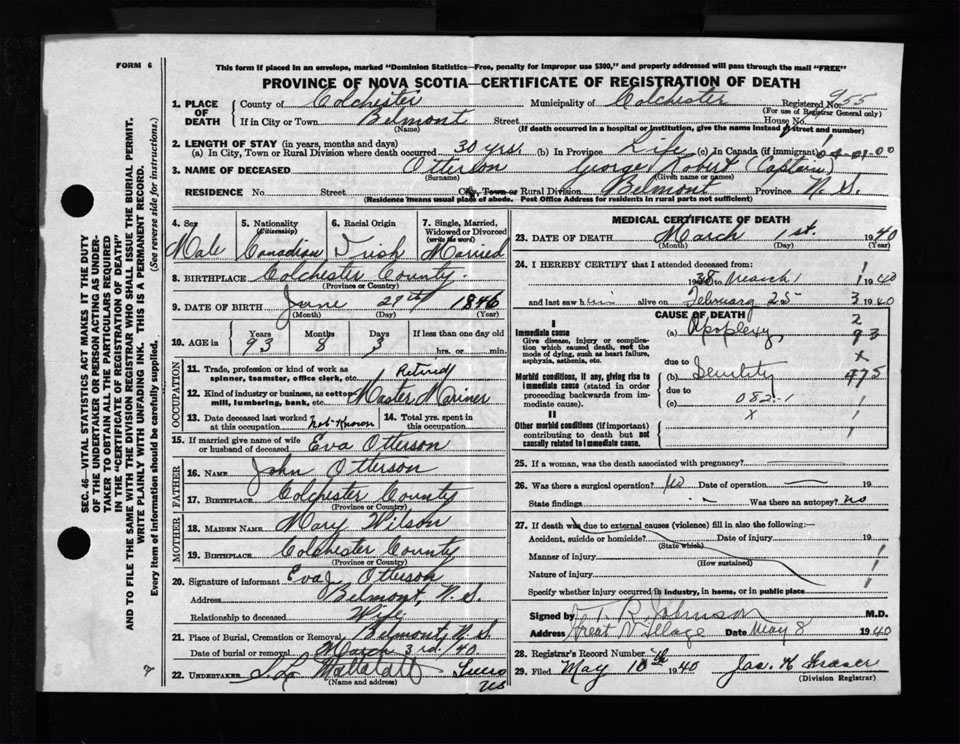 FORM 6
This form if placed in an envelope, marked "Dominion Statistics—Free, penalty for improper use $300," and properly addressed will pass through the mail "FREE"
PROVINCE OF NOVA SCOTIA—CERTIFICATE OF REGISTRATION OF DEATH
1. PLACE OF DEATH
County of Colchester Municipality of Colchester Registered No. 955
(For use of Registrar General only)
If in City or Town Belmont Street House No.
(Name) (If death occurred in a hospital or institution, give the name instead of street and number)
2. LENGTH OF STAY (in years, months and days)
(a) In City, Town or Rural Division where death occurred 30 yrs. (b) In Province Life (c) In Canada (if immigrant)
3. NAME OF DECEASED Otterson George Robert (Captain)
(Surname) (Given name or names)
RESIDENCE No. Street City, Town or Rural Division Belmont Province N.S.
(Residence means usual place of abode. Post Office Address for residents in rural parts not sufficient)
4. Sex 5. Nationality (Citizenship) 6. Racial Origin 7. Single, Married, Widowed or Divorced (write the word)
Male Canadian Irish Married
8. BIRTHPLACE Colchester County.
(Province or County)
9. DATE OF BIRTH June 27th 1846
(Month) (Day) (Year)
10. AGE in Years Months Days If less than one day old
93 8 3 hrs. or min.
OCCUPATION
11. Trade, profession or kind of work as spinner, teamster, office clerk, etc. Retired
12. Kind of industry or business, as cotton mill, lumbering, bank, etc. Master Mariner
13. Date deceased last worked at this occupation Not Known 14. Total yrs. spent in this occupation
15. If married give name of wife or husband of deceased Eva Otterson
FATHER
16. NAME John Otterson
17. BIRTHPLACE Colchester County
(Province or County)
MOTHER
18. MAIDEN NAME Mary Wilson
19. BIRTHPLACE Colchester County
(Province or Country)
20. Signature of informant Eva Otterson
Address Belmont, N.S.
Relationship to deceased Wife
21. Place of Burial, Cremation or Removal Belmont, N.S.
Date of burial or removal March 3rd. 1940
22. UNDERTAKER Truro
(Name and address) NS
MEDICAL CERTIFICATE OF DEATH
23. DATE OF DEATH March 1st. 1940
(Month) (Day) (Year)
24. I HEREBY CERTIFY that I attended deceased from:
1938 to March 1 1940
and last saw him alive on February 25 1940
CAUSE OF DEATH
I
Immediate cause (a) Apoplexy,
Give disease, injury or complication which caused death, not the mode of dying, such as heart failure, asphyxia, asthenia, etc.
due to
Morbid conditions, if any, giving rise to immediate cause (stated in order proceeding backwards from immediate cause). (b) Senility
due to
(c) 082-1
II
Other morbid conditions (if important) contributing to death but not causally related to immediate cause.
25. If a woman, was the death associated with pregnancy?
26. Was there a surgical operation? No Date of operation 19
State findings Was there an autopsy? no
27. If death was due to external causes (violence) fill in also the following:
Accident, suicide or homicide? Date of injury 19
(State which)
Manner of injury
(How sustained)
Nature of injury
Specify whether injury occurred in industry, in home, or in public place
Signed by T. R. Johnson M.D.
Address Great Village Date May 8 1940
28. Registrar's Record Number
29. Filed May 10th 1940 Jas. K Fraser
(Division Registrar)
SEC. 46—VITAL STATISTICS ACT MAKES IT THE DUTY
OF THE UNDERTAKER OR PERSON ACTING AS UNDER-
TAKER TO OBTAIN ALL THE PARTICULARS REQUIRED
IN THE "CERTIFICATE OF REGISTRATION OF DEATH"
AND TO FILE THE SAME WITH THE DIVISION REGISTRAR WHO SHALL ISSUE THE BURIAL PERMIT.
WRITE PLAINLY WITH UNFADING INK. THIS IS A PERMANENT RECORD.
Every item of information should be carefully supplied. (See reverse side for instructions.)